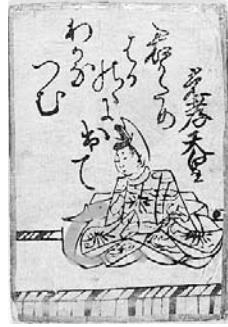 光孝天皇
君かため
はるの
のに出て
わかな
つむ